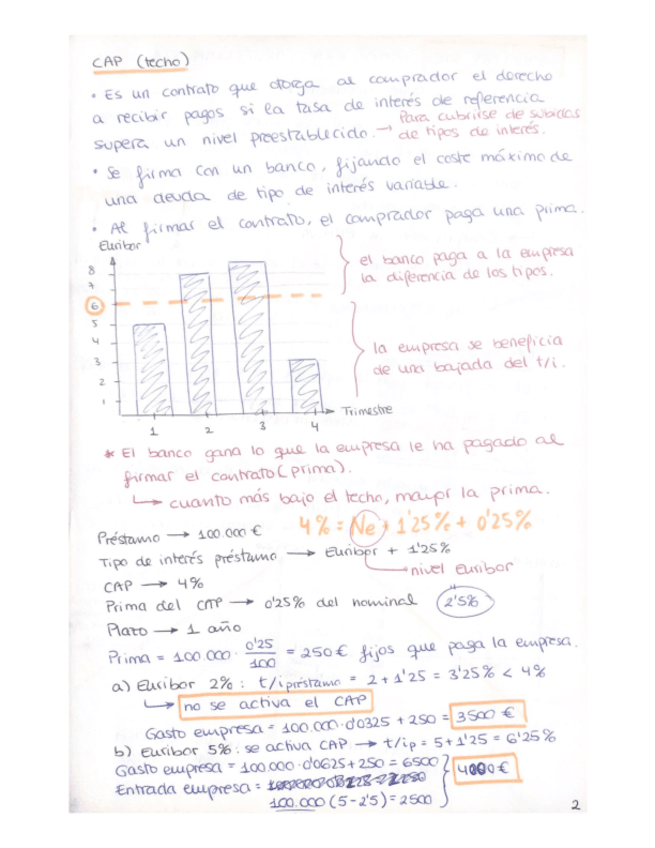 CAP (techo)
• Es un contrato que otorga al comprador el derecho
a recibir pagos si la tasa de interés de referencia
supera un nivel preestablecido. → Para cubrirse de subidas
de tipos de interés.
• Se firma con un banco, fijando el coste máximo de
una deuda de tipo de interés variable.
• Al firmar el contrato, el comprador paga una prima.
Euribor
8
7
6
5
4
3
2
1
1 2 3 4
Trimestre
el banco paga a la empresa
la diferencia de los tipos.
la empresa se beneficia
de una bajada del t/i.
* El banco gana lo que la empresa le ha pagado al
firmar el contrato (prima).
↳ cuanto más bajo el techo, mayor la prima.
4% = Ne + 1'25% + 0'25%
Préstamo → 100.000 €
Tipo de interés préstamo → Euribor + 1'25%
nivel euribor
CAP → 4%
Prima del CAP → 0'25% del nominal
2'5%
Plazo → 1 año
Prima = 100.000 · 0'25/100 = 250€ fijos que paga la empresa.
a) Euribor 2%: t/i préstamo = 2 + 1'25 = 3'25% < 4%
↳ no se activa el CAP
Gasto empresa = 100.000 · 0'0325 + 250 = 3500 €
b) Euribor 5%: se activa CAP → t/ip = 5 + 1'25 = 6'25%
Gasto empresa = 100.000 · 0'0625 + 250 = 6500
4000€
Entrada empresa =
100.000 (5 - 2'5) = 2500
2